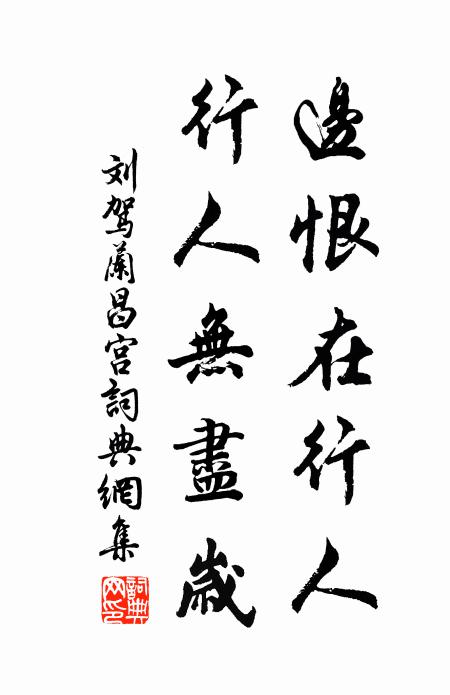 邊恨在行人
行人無盡歲
刘駕蘭昌宮詞典網集
詞典网印